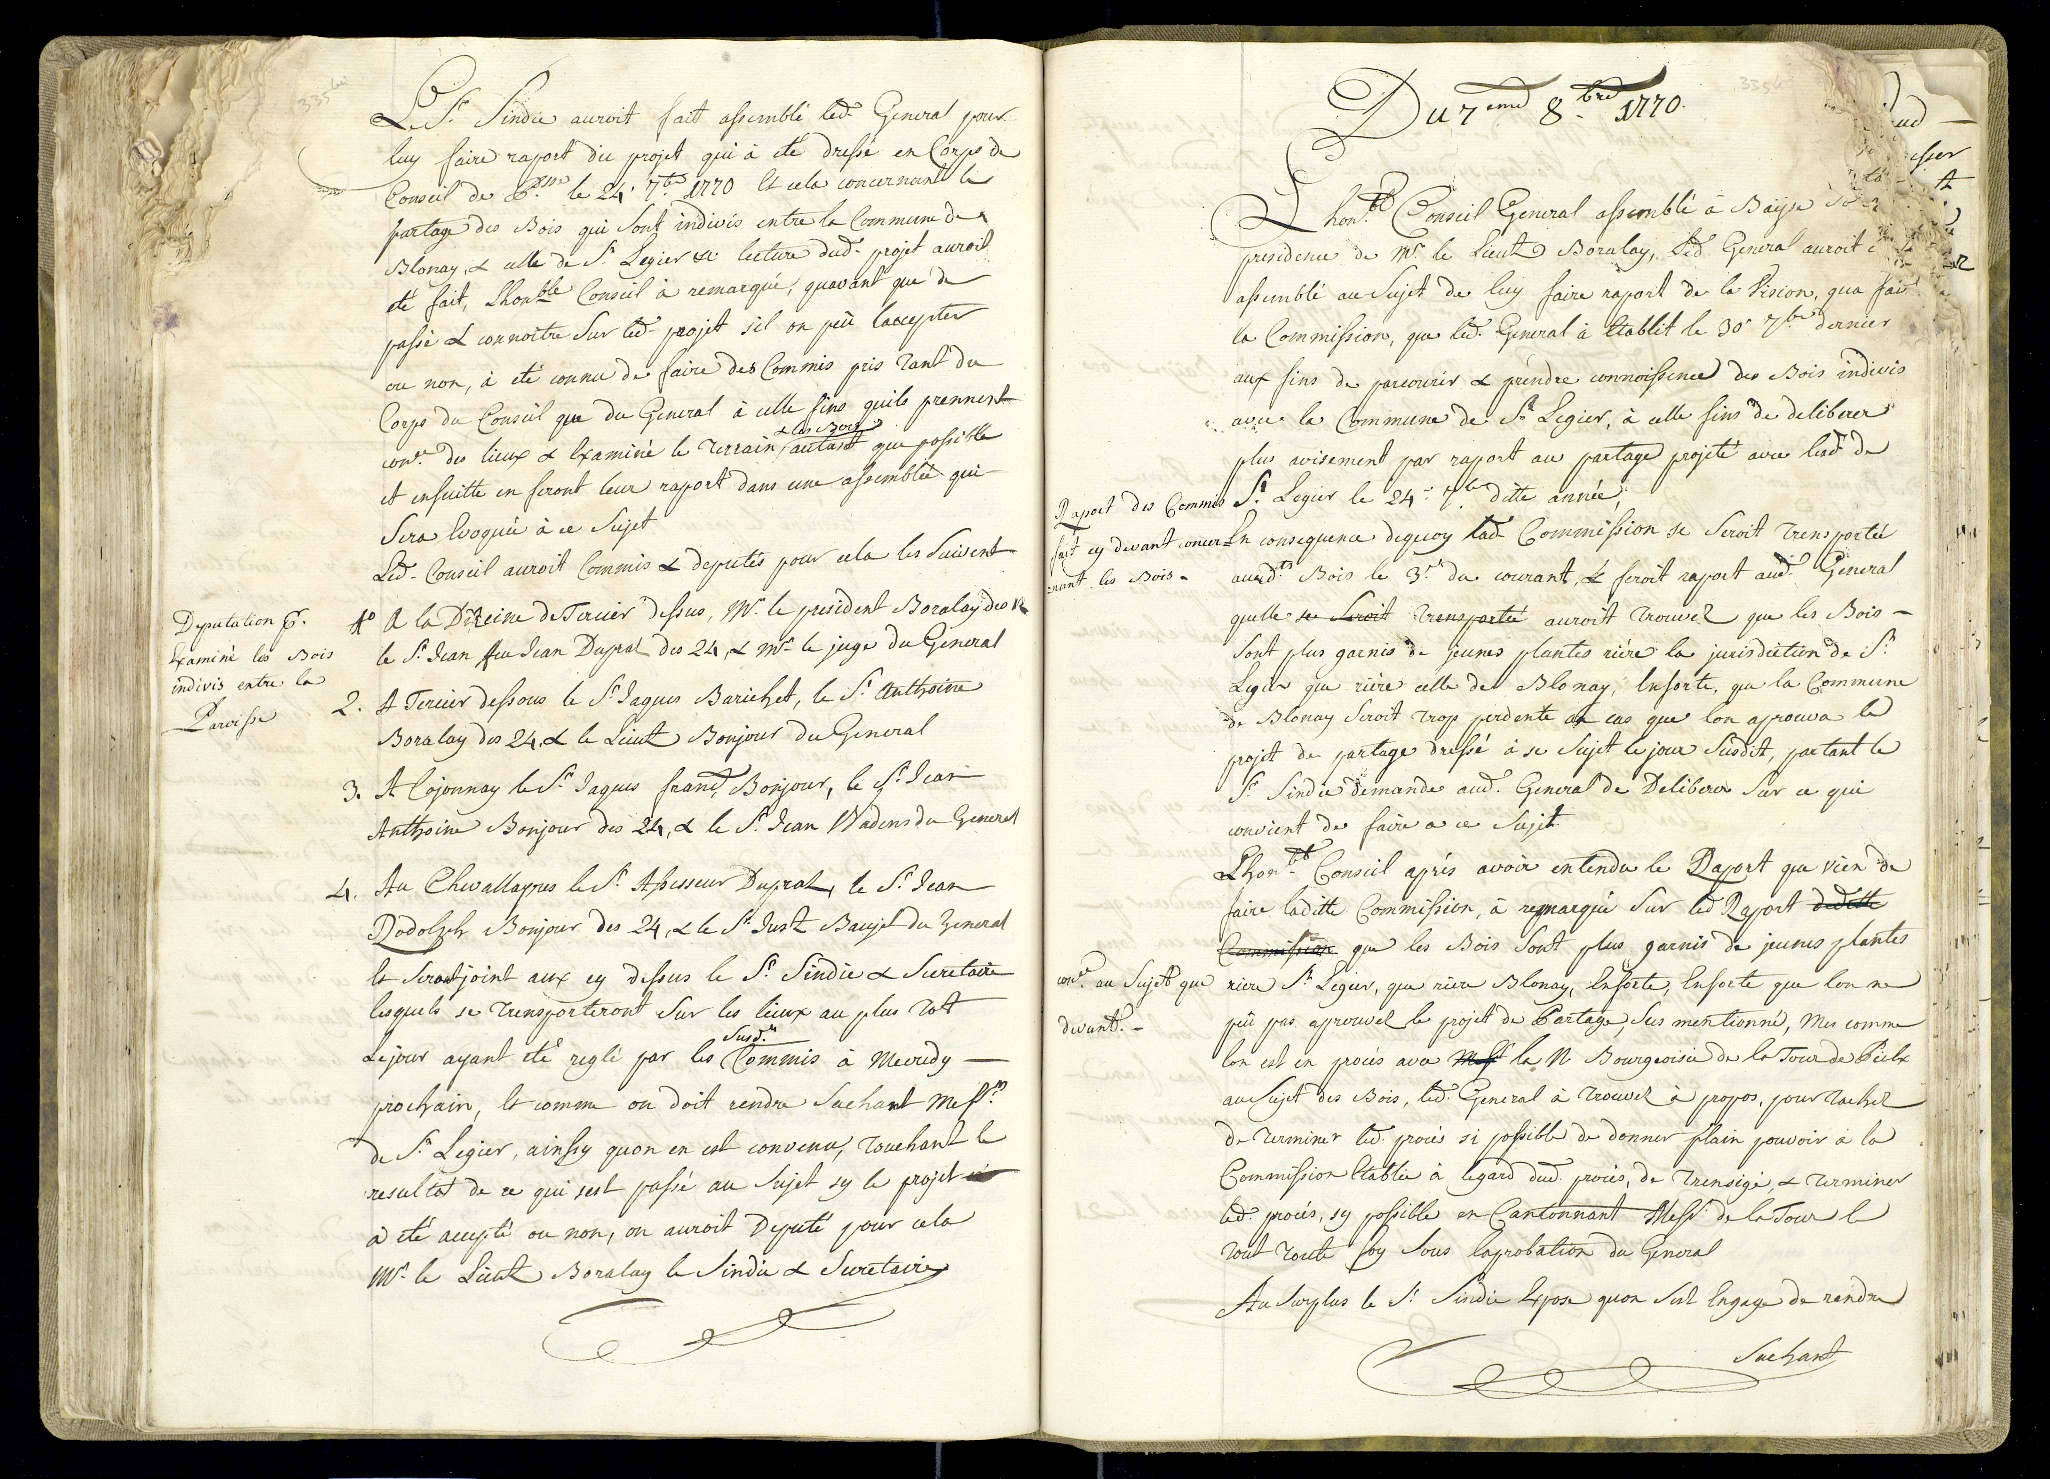 Le Sr. Sindic auroit fait assemblé led. General pour
luy faire raport du projet qui à eté dressé en Corps de
Conseil de le 24e 7bre 1770 Et cela concernant le
partage des Bois qui sont indivis entre la Commune de
Blonay, & celle de St. Legier & lecture dud. projet auroit
été fait, Lhonble Conseil à remarqué, quavant que de
passé & connoitre sur led. projet sil on peût laccepter
ou non, à eté connu de faire des Commis pris tant du
Corps du Conseil que du General à celle fins quils prennent
& les Bois
conce. des lieux & Examiné le terrain autant que possible
et ensuitte en feront leur raport dans une assemblée qui
sera Evoquée à ce sujet
Led. Conseil auroit Commis & deputés pour cela les suivent
Deputation pr.
Examiné les Bois
indivis entre la
Paroisse
1o A la Dizeine de Tercier dessus, Mr. le president Boralay des 12
le Sr. Jean feu Jean Dupral des 24, & Mr. le juge du General
2. A Tercier dessous le Sr. Jaques Barichet, le Sr. Anthoine
Boralay des 24, & le Lieut Bonjour du General
3. A Cojonnay le Sr. Jaques franc. Bonjour, le Sr. Jean
Anthoine Bonjour des 24, & le Sr. Jean Wadens du General
4. Au Chevalleyres le Sr. Assesseur Dupral, le Sr. Jean
Rodolph Bonjour des 24, & le Sr. Just Baujet du General
Et serat joint aux cy dessus le Sr. Sindic & Secretaire
lesquels se transporteront sur les lieux au plus tot
susd.
Le jour ayant eté reglé par les Commis à Mecredy
prochain, Et comme on doit rendre sachant Messrs.
de St. Legier, ainssy quon en est convenu, touchant le
resultat de ce qui sest passé au sujet sy le projet
à eté accepté ou non, on auroit Deputé pour cela
Mr. le Lieut Boralay le Sindic & Secretaire
Du 7eme 8bre 1770.
Lhonble Conseil General assemblé à Bayse
presidence de Mr. le Lieut Boralay, Led. General auroit
assemblé au sujet de luy faire raport de la Vision, qua fait
la Commission, que led. General à Etablit le 30e 7bre dernier
aux fins de parcourir & prendre connoissence des Bois indivis
avec la Commune de St. Legier, à celle fins de deliberer
plus avisement par raport au partage projeté avec lad. de
St. Legier le 24e 7bre ditte année,
Raport des Commis
fait cy devant concer-
nant les Bois.
En consequence dequoy lad. Commission se seroit transportée
auxdts Bois le 3e du courant, & feroit raport aud. General
quelle se seroit transportée auroit trouvez que les Bois
sont plus garnis de jeunes plantes riére la jurisdiction de St.
Legier que riére celle de Blonay, Ensorte, que la Commune
de Blonay seroit trop perdente au cas que lon aprouva le
projet de partage dressé à ce sujet le jour susdit, partant le
Sr. Sindic demande aud. General de Deliberer sur ce qui
convient de faire a ce sujet
Lhonble Conseil aprés avoir entendu le Raport que vien de
faire laditte Commission, à remarqué sur led Raport deditte
Commission que les Bois sont plus garnis de jeunes plantes
conce. au sujet que
devant.
riere St. Legier, que riere Blonay, Ensorte, Ensorte que lon ne
peû pas aprouvez le projet de Partage sus mentionné, Mes comme
lon est en procés avec Messrs la N. Bourgeoisie de la Tour de Peilz
au sujet des Bois, led. General à trouvez à propos, pour tachez
de terminer led. procés si possible de donner plain pouvoir à la
Commission Etablie à legard dud. procés, de transigé & terminer
led. procés, sy possible en Cantonnant Messrs de la Tour le
tout toute foy sous laprobation du General
Au surplus le Sr. Sindic Expose quon sest Engage de rendre
sachant